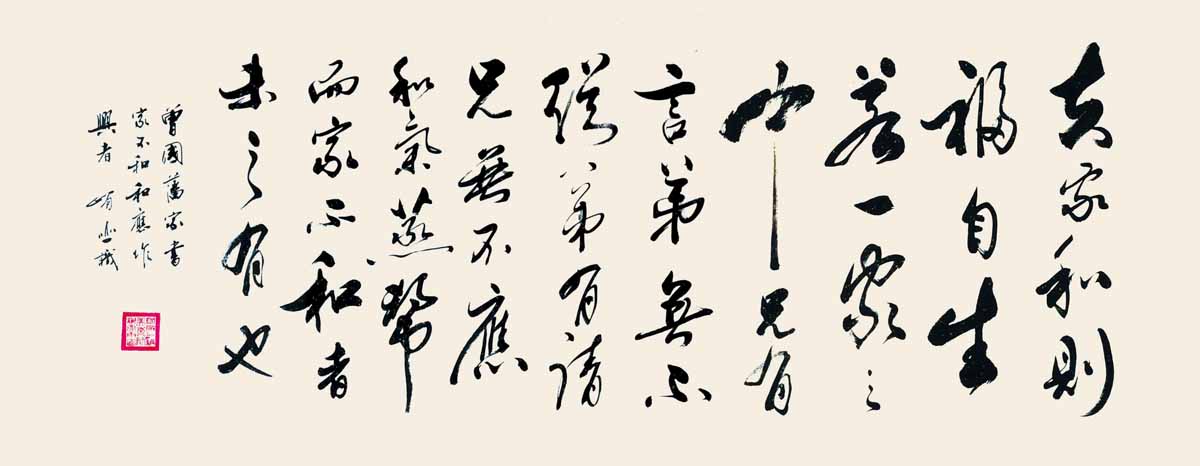 夫家和則
福自生
若一家之
中兄有
言弟無不
從弟有請
兄無不應
和氣蒸
而家不和者
未之有也
曾國藩家書
家不和和應作
興者